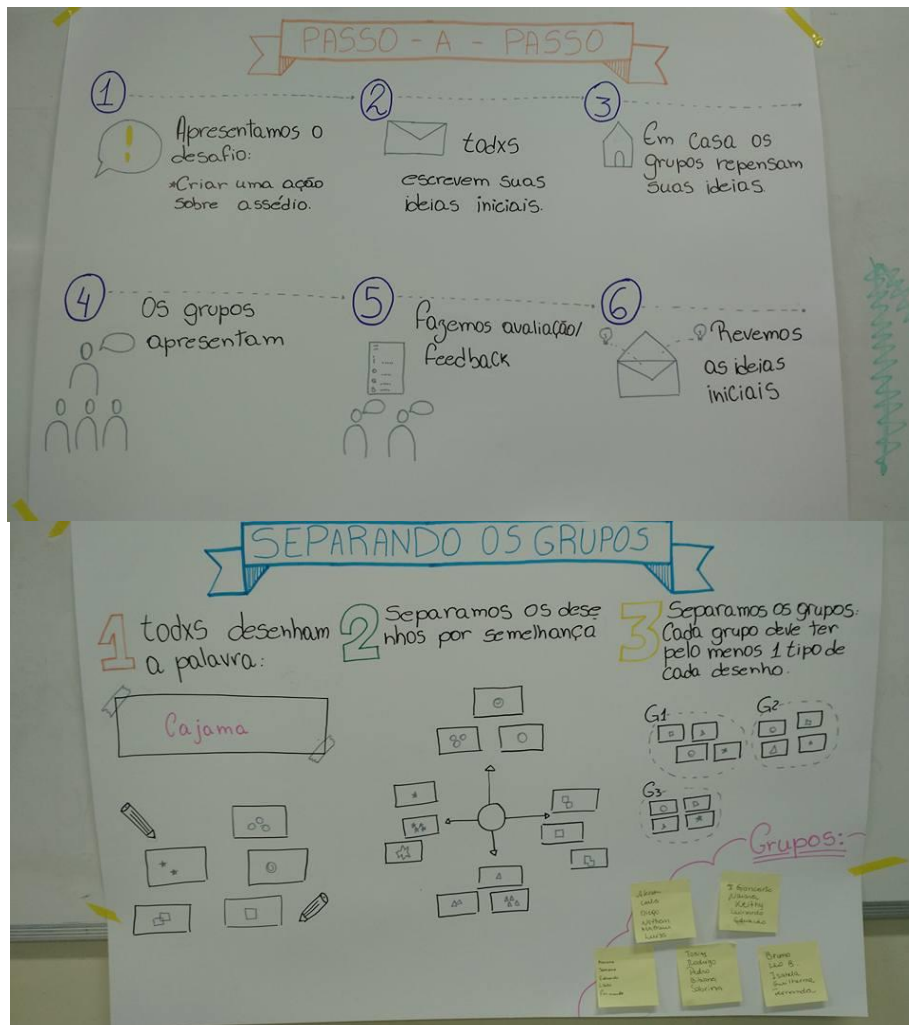 PASSO - A - PASSO
1
Apresentamos o
desafio:
*Criar uma ação
sobre assédio.
2
todxs
escrevem suas
ideias iniciais.
3
Em casa os
grupos repensam
suas ideias.
4
Os grupos
apresentam
5
Fazemos avaliação/
feedback
6
Revemos
as ideias
iniciais
SEPARANDO OS GRUPOS
1
todxs desenham
a palavra:
Cajama
2
Separamos os dese
nhos por semelhança
3
Separamos os grupos:
Cada grupo deve ter
pelo menos 1 tipo de
cada desenho.
G1
G2
G3
Grupos:
Keithy
Leonardo
Eduardo
Rodrigo
Pedro
Sabrina
Bruno
Isabela
Guilherme
Fernanda